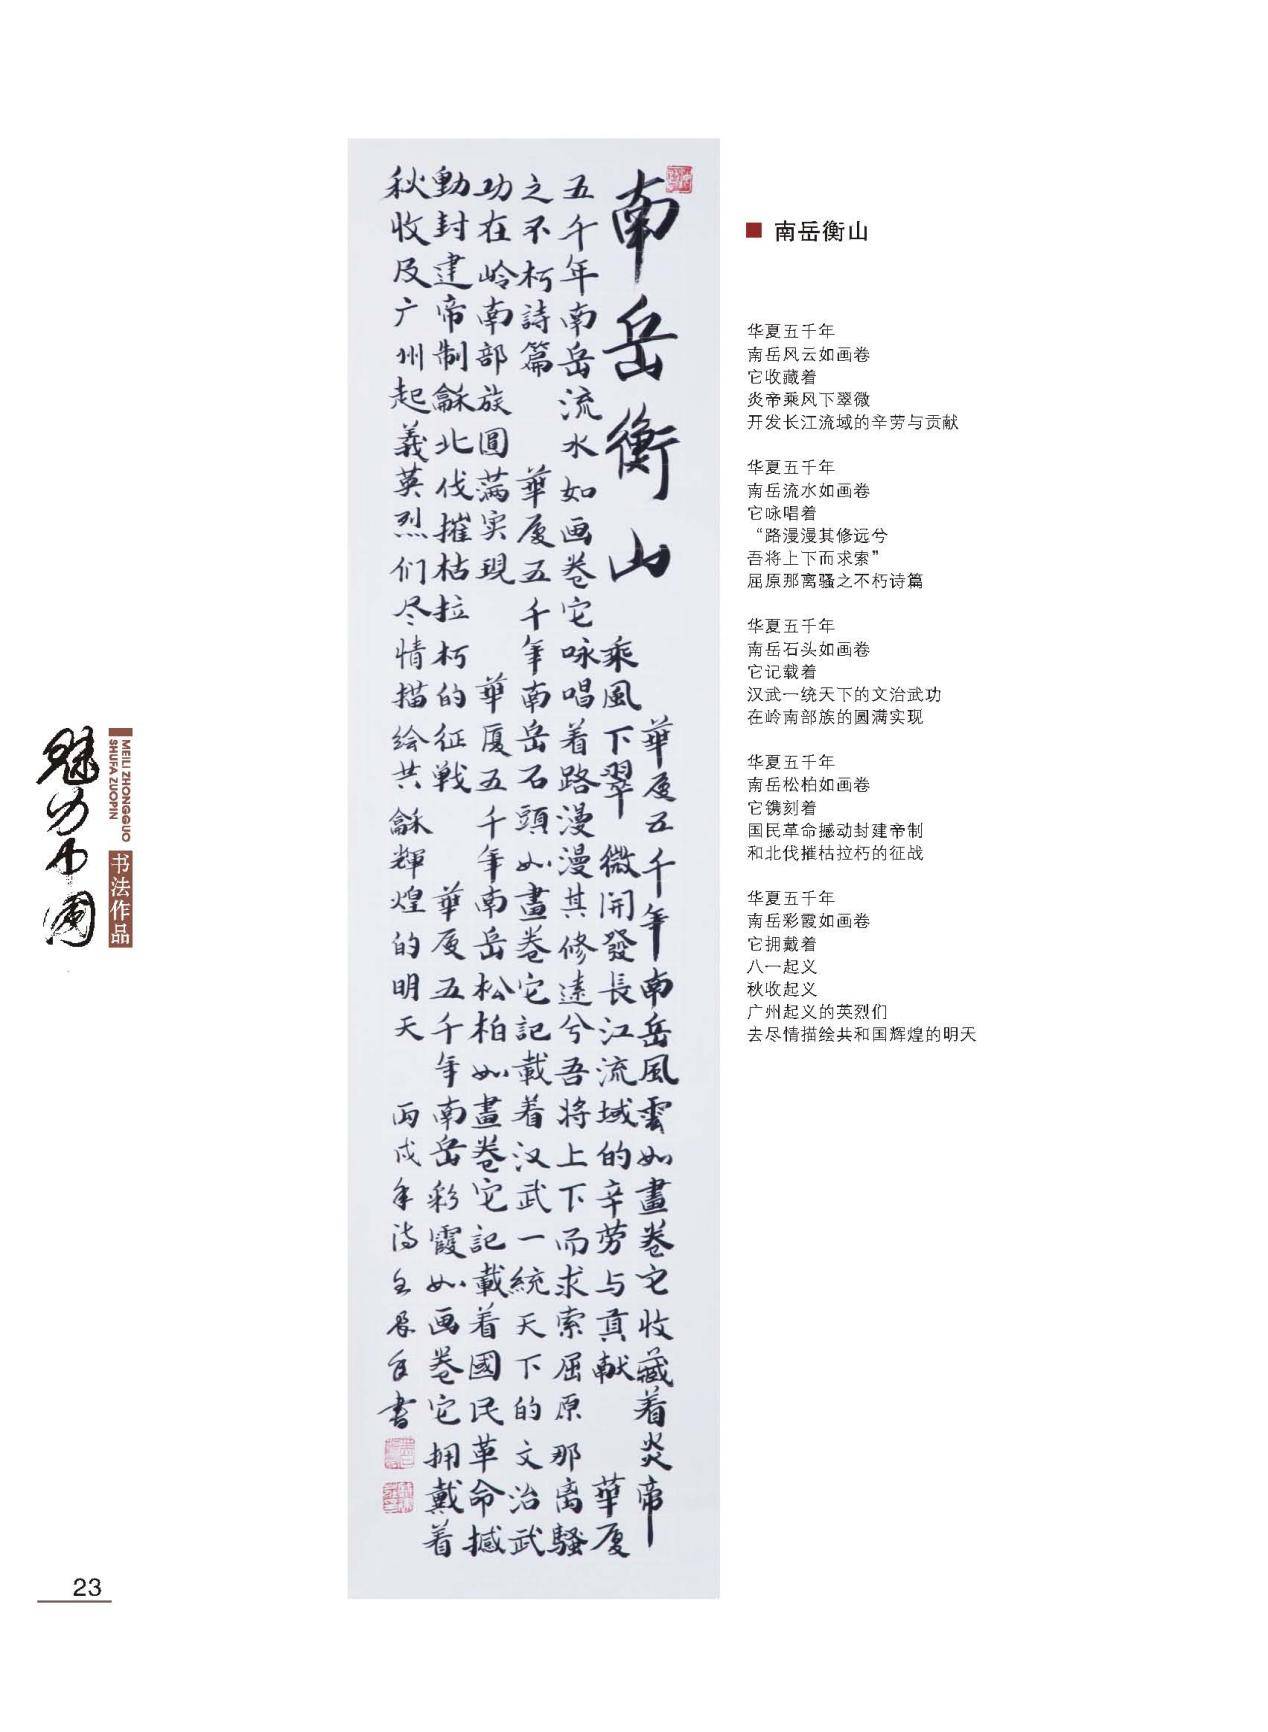 南岳衡山
華夏五千年南岳風雲如畫卷它收藏着炎帝
乘風下翠微開發長江流域的辛劳与貢献 華夏
五千年南岳流水如画卷它咏唱着路漫漫其修遠兮吾将上下而求索屈原那离騷
之不朽詩篇 華夏五千年南岳石頭如畫卷它記載着汉武一統天下的文治武
功在岭南部族圓满实現 華夏五千年南岳松柏如畫卷它記載着國民革命撼
動封建帝制龢北伐摧枯拉朽的征戰 華夏五千年南岳彩霞如画卷它拥戴着
秋收及广州起義英烈们尽情描绘共龢輝煌的明天 丙戌年 書
■ 南岳衡山
华夏五千年
南岳风云如画卷
它收藏着
炎帝乘风下翠微
开发长江流域的辛劳与贡献
华夏五千年
南岳流水如画卷
它咏唱着
“路漫漫其修远兮
吾将上下而求索”
屈原那离骚之不朽诗篇
华夏五千年
南岳石头如画卷
它记载着
汉武一统天下的文治武功
在岭南部族的圆满实现
华夏五千年
南岳松柏如画卷
它镌刻着
国民革命撼动封建帝制
和北伐摧枯拉朽的征战
华夏五千年
南岳彩霞如画卷
它拥戴着
八一起义
秋收起义
广州起义的英烈们
去尽情描绘共和国辉煌的明天
魅力中国
MEILI ZHONGGUO
SHUFA ZUOPIN
书法作品
23